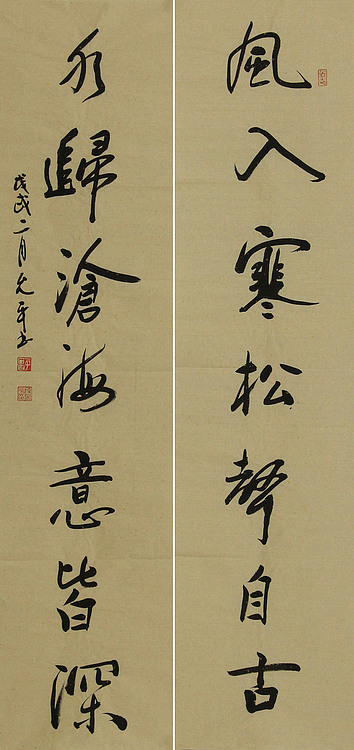 風入寒松聲自古
水歸滄海意皆深
戊戌二月光平书